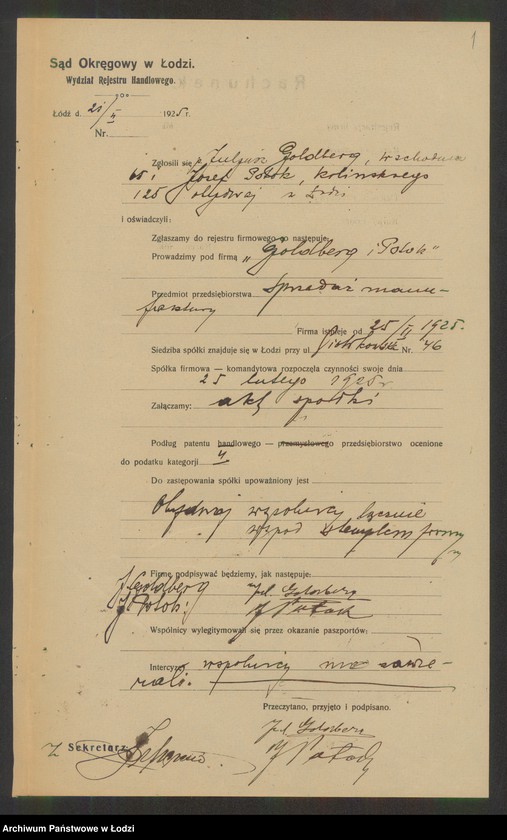 1
Sąd Okręgowy w Łodzi.
Wydział Rejestru Handlowego.
Łódź d. 21/II 1925 r.
Nr.
Zgłosili się p. Juljusz Goldberg, Wschodnia
65 i Józef Potok, Kilińskiego
125 obydwaj z Łodzi
i oświadczyli:
Zgłaszamy do rejestru firmowego co następuje:
Prowadzimy pod firmą „Goldberg i Potok"
Przedmiot przedsiębiorstwa Sprzedaż manu-
faktury
Firma istnieje od 25/II 1925.
Siedziba spółki znajduje się w Łodzi przy ul. Piotrkowska Nr. 46
Spółka firmowa — komandytowa rozpoczęła czynności swoje dnia
25 lutego 1925 r
Załączamy: akt spółki
Podług patentu handlowego — przemysłowego przedsiębiorstwo ocenione
do podatku kategorji II
Do zastępowania spółki upoważniony jest
Obydwaj wspólnicy łącznie
pod stemplem firmy
Firmę podpisywać będziemy, jak następuje:
J. Goldberg Jul. Goldberg
J. Potok J Potok
Wspólnicy wylegitymowali się przez okazanie paszportów:
Intercyzy wspólnicy nie zawie-
rali.
Przeczytano, przyjęto i podpisano.
Jul. Goldberg
Sekretarz J Potok
Archiwum Państwowe w Łodzi